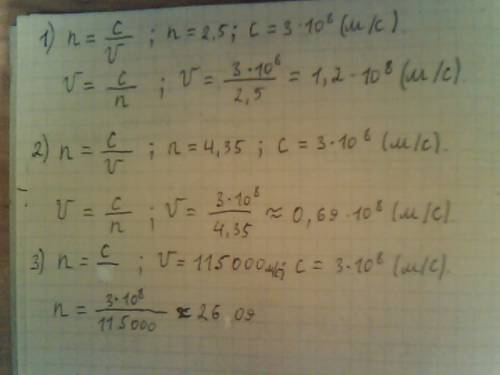 1) n = c/v ; n = 2,5 ; c = 3·10⁸ (м/с).
v = c/n ; v = 3·10⁸/2,5 = 1,2·10⁸ (м/с).
2) n = c/v ; n = 4,35 ; c = 3·10⁸ (м/с).
v = c/n ; v = 3·10⁸/4,35 ≈ 0,69·10⁸ (м/с).
3) n = c/ ; v = 115000 м/с; c = 3·10⁸ (м/с).
n = 3·10⁸/115000 ≈ 26,09